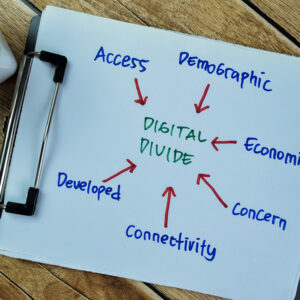 Access
Demographic
DIGITAL
DIVIDE
Economi
Developed
Concern
Connectivity